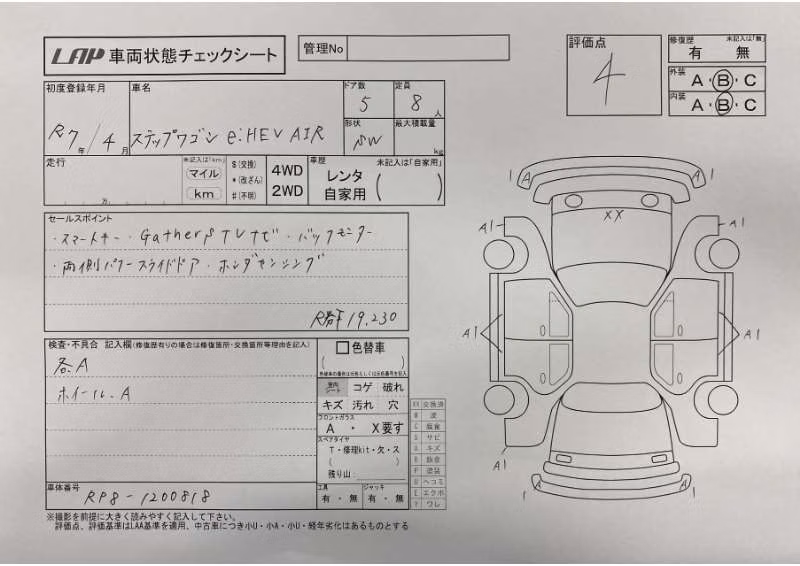 LAP 車両状態チェックシート
管理No
評価点
4
修復歴 未記入は「無」
有 無
外装
A・B・C
内装
A・B・C
初度登録年月
R7年/4月
車名
ステップワゴン e:HEV AIR
ドア数
5
定員
8人
形状
SW
最大積載量
kg
走行
万
未記入は「km」
マイル
km
$(交換)
*(改ざん)
#(不明)
4WD
2WD
車歴
未記入は「自家用」
レンタ
自家用
セールスポイント
・スマートキー・Gathers TVナビ・バックモニター
・両側パワースライドドア・ホンダセンシング
19,230
検査・不具合 記入欄(修復歴有りの場合は修復箇所・交換箇所等理由を記入)
各A
ホイール、A
色替車
車内シート
コゲ 破れ
キズ 汚れ 穴
フロントガラス
A ・ X要す
スペアタイヤ
T・修理kit・欠・ス
残り山:
工具
有・無
ジャッキ
有・無
XX 交換済
W 波
C 腐食
S サビ
A キズ
P 塗装
U ヘコミ
E エクボ
Y ワレ
車体番号
RP8-1200818
※撮影を前提に大きく読みやすく記入して下さい。
評価点、評価基準はLAA基準を適用、中古車につき小U・小A・小U・経年劣化はあるものとする
A
A
XX
A1
A1
A1
A1
A1
A
A